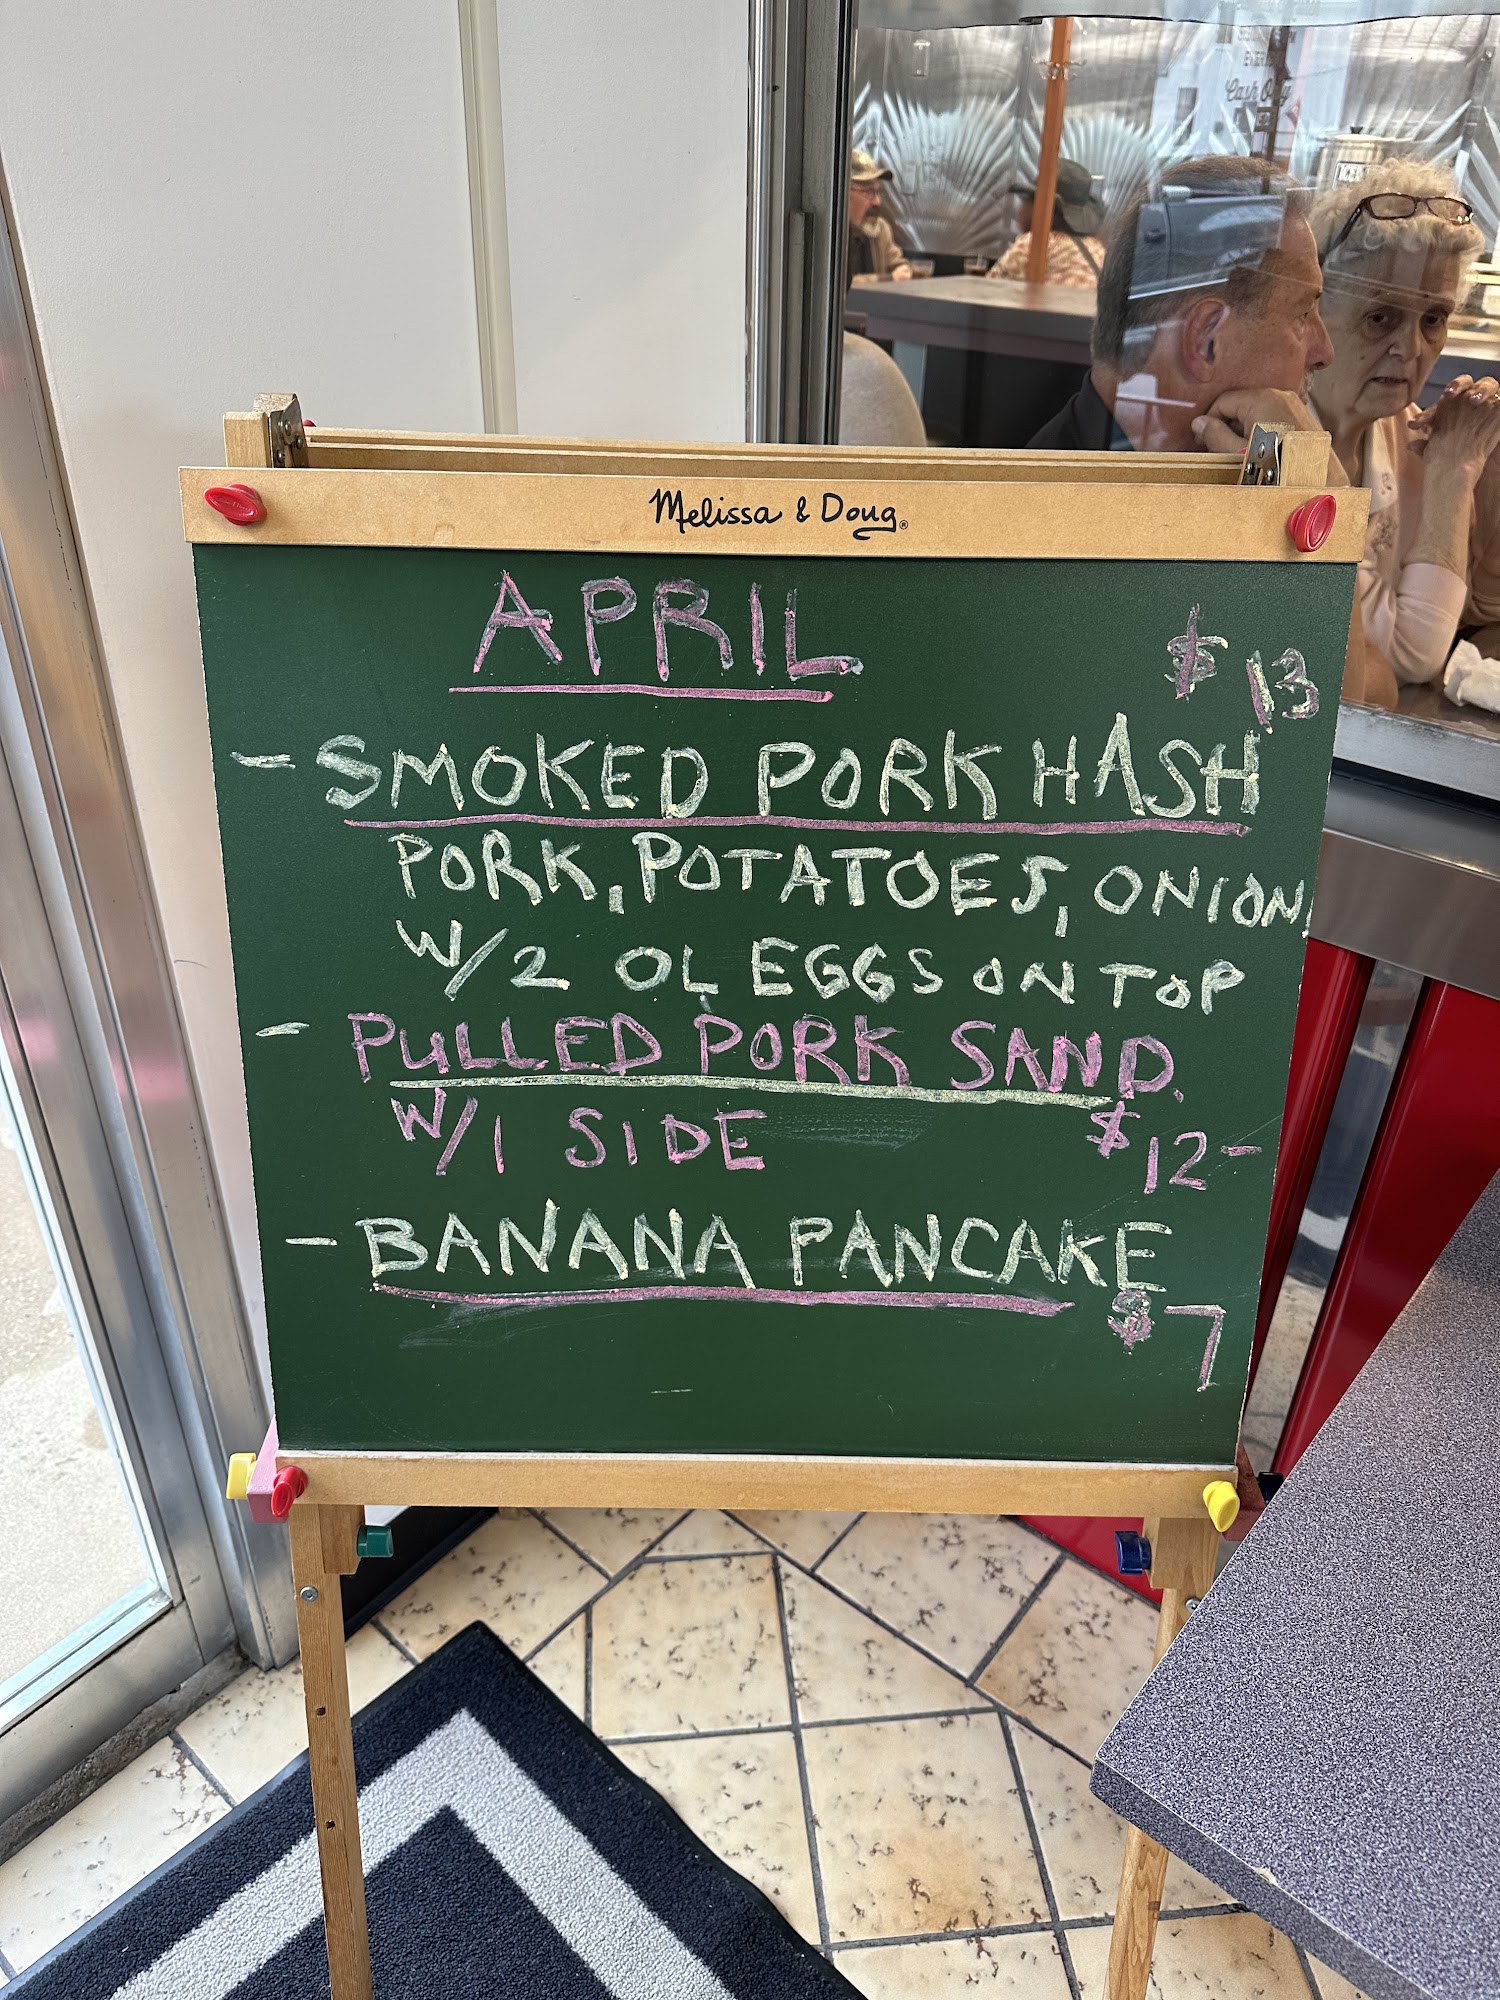 Cash Only
Melissa & Doug®
APRIL
$13
- SMOKED PORK HASH
PORK, POTATOES, ONION,
W/2 OL EGGS ON TOP
- PULLED PORK SAND.
W/1 SIDE $12-
- BANANA PANCAKE
$7